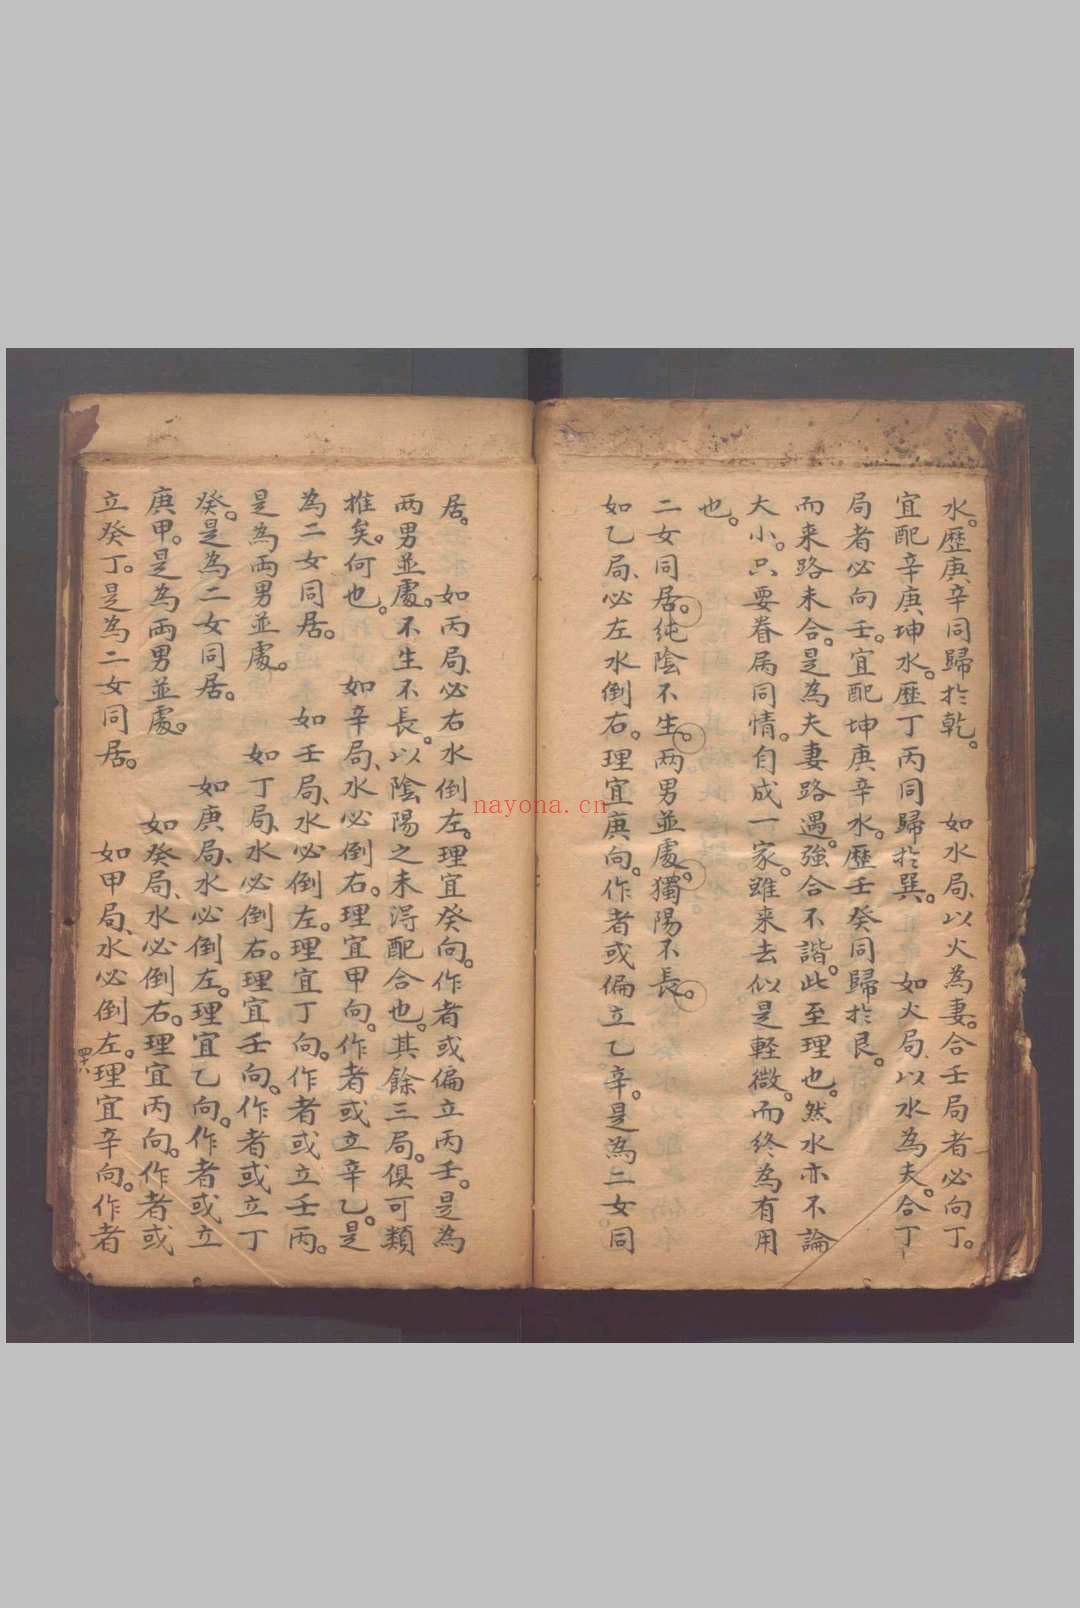 水。歷庚辛同歸於乾。　如水局、以火為妻。合壬局者必向丁。
宜配辛庚坤水。歷丁丙同歸於巽。　如火局、以水為夫。合丁
局者必向壬。宜配坤庚辛水。歷壬癸同歸於艮。
而来路未合。是為夫妻路遇。強合不諧。此至理也。然水亦不論
大小。只要眷属同情。自成一家。雖来去似是輕微。而終為有用
也。
二女同居。純陰不生。两男並處。獨陽不長。
如乙局、必左水倒右。理宜庚向。作者或偏立乙辛。是為二女同
居。　如丙局、必右水倒左。理宜癸向。作者或偏立丙壬。是為
两男並處。不生不長。以陰陽之未淂配合也。其餘三局。俱可類
推矣。何也。　如辛局、水必倒右。理宜甲向。作者或立辛乙。是
為二女同居。　如壬局、水必倒左。理宜丁向。作者或立壬丙。
是為两男並處。　如丁局、水必倒右。理宜壬向。作者或立丁
癸。是為二女同居。　如庚局、水必倒左。理宜乙向。作者或立
庚甲。是為两男並處。　如癸局、水必倒右。理宜丙向。作者或
立癸丁。是為二女同居。　如甲局、水必倒左。理宜辛向。作者
四六
nayona.cn